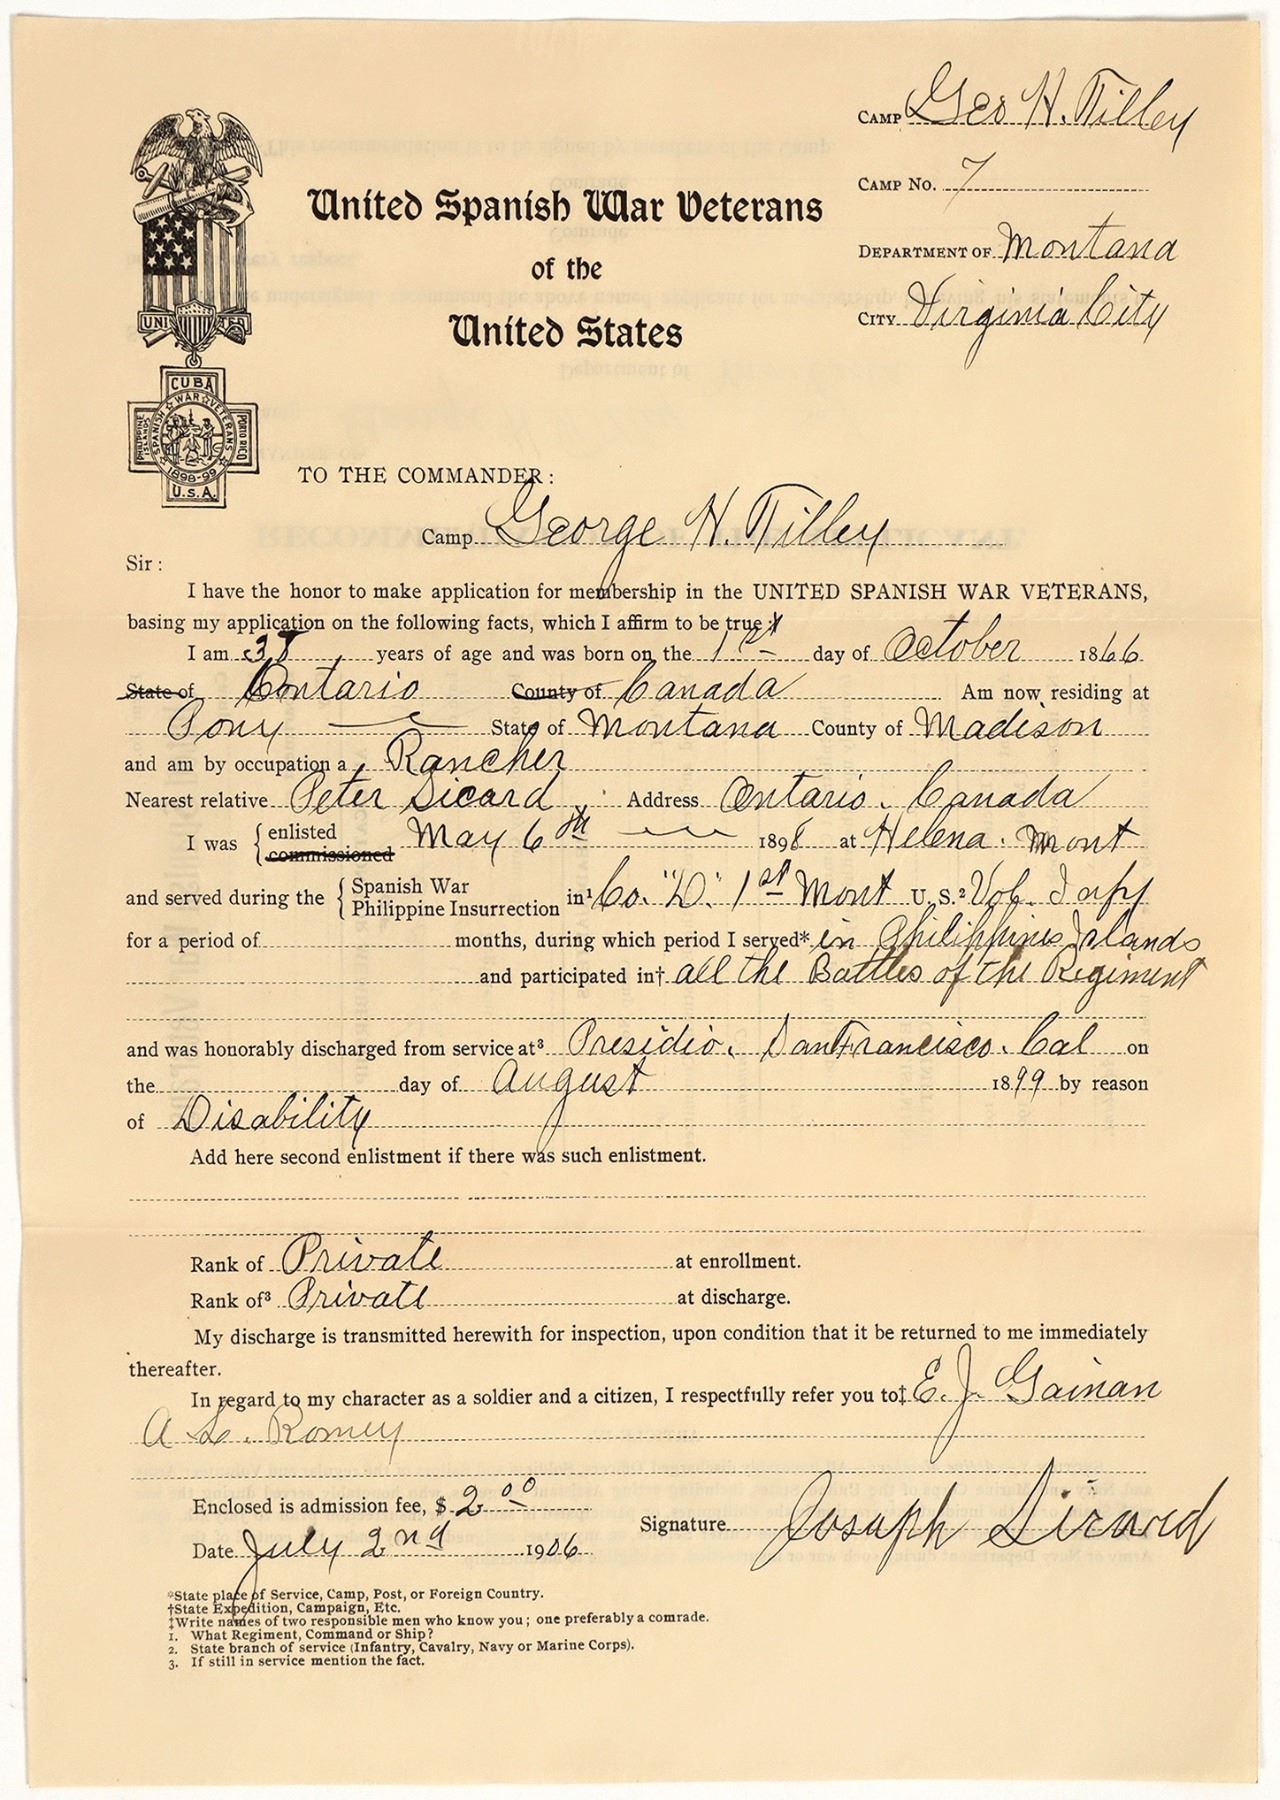 CAMP Geo H. Tilley
CAMP NO. 7
United Spanish War Veterans
DEPARTMENT OF Montana
of the
CITY Virginia City
United States
UNITED
CUBA
PHILIPPINE ISLANDS
SPANISH WAR VETERANS
PORTO RICO
1898-99
U.S.A.
TO THE COMMANDER:
Camp George H. Tilley
Sir:
I have the honor to make application for membership in the UNITED SPANISH WAR VETERANS,
basing my application on the following facts, which I affirm to be true:
I am years of age and was born on the 1st day of October 1866
State of Ontario County of Canada Am now residing at
Pony State of Montana County of Madison
and am by occupation a Rancher
Nearest relative Peter Sicard Address Ontario. Canada
I was { enlisted May 6th 1898 at Helena. Mont
commissioned
and served during the { Spanish War in¹ Co. "D". 1st Mont U.S.² Vol. Infy
Philippine Insurrection
for a period of months, during which period I served* in Philippines Islands
and participated in† all the Battles of the Regiment
and was honorably discharged from service at³ Presidio. San Francisco. Cal on
the day of August 1899 by reason
of Disability
Add here second enlistment if there was such enlistment.
Rank of Private at enrollment.
Rank of³ Private at discharge.
My discharge is transmitted herewith for inspection, upon condition that it be returned to me immediately
thereafter.
In regard to my character as a soldier and a citizen, I respectfully refer you to‡ E. J. Gainan
A L. Romey
Enclosed is admission fee, $ 2 00
Signature Joseph Sicard
Date July 2nd 1906
*State place of Service, Camp, Post, or Foreign Country.
†State Expedition, Campaign, Etc.
‡Write names of two responsible men who know you; one preferably a comrade.
1. What Regiment, Command or Ship?
2. State branch of service (Infantry, Cavalry, Navy or Marine Corps).
3. If still in service mention the fact.